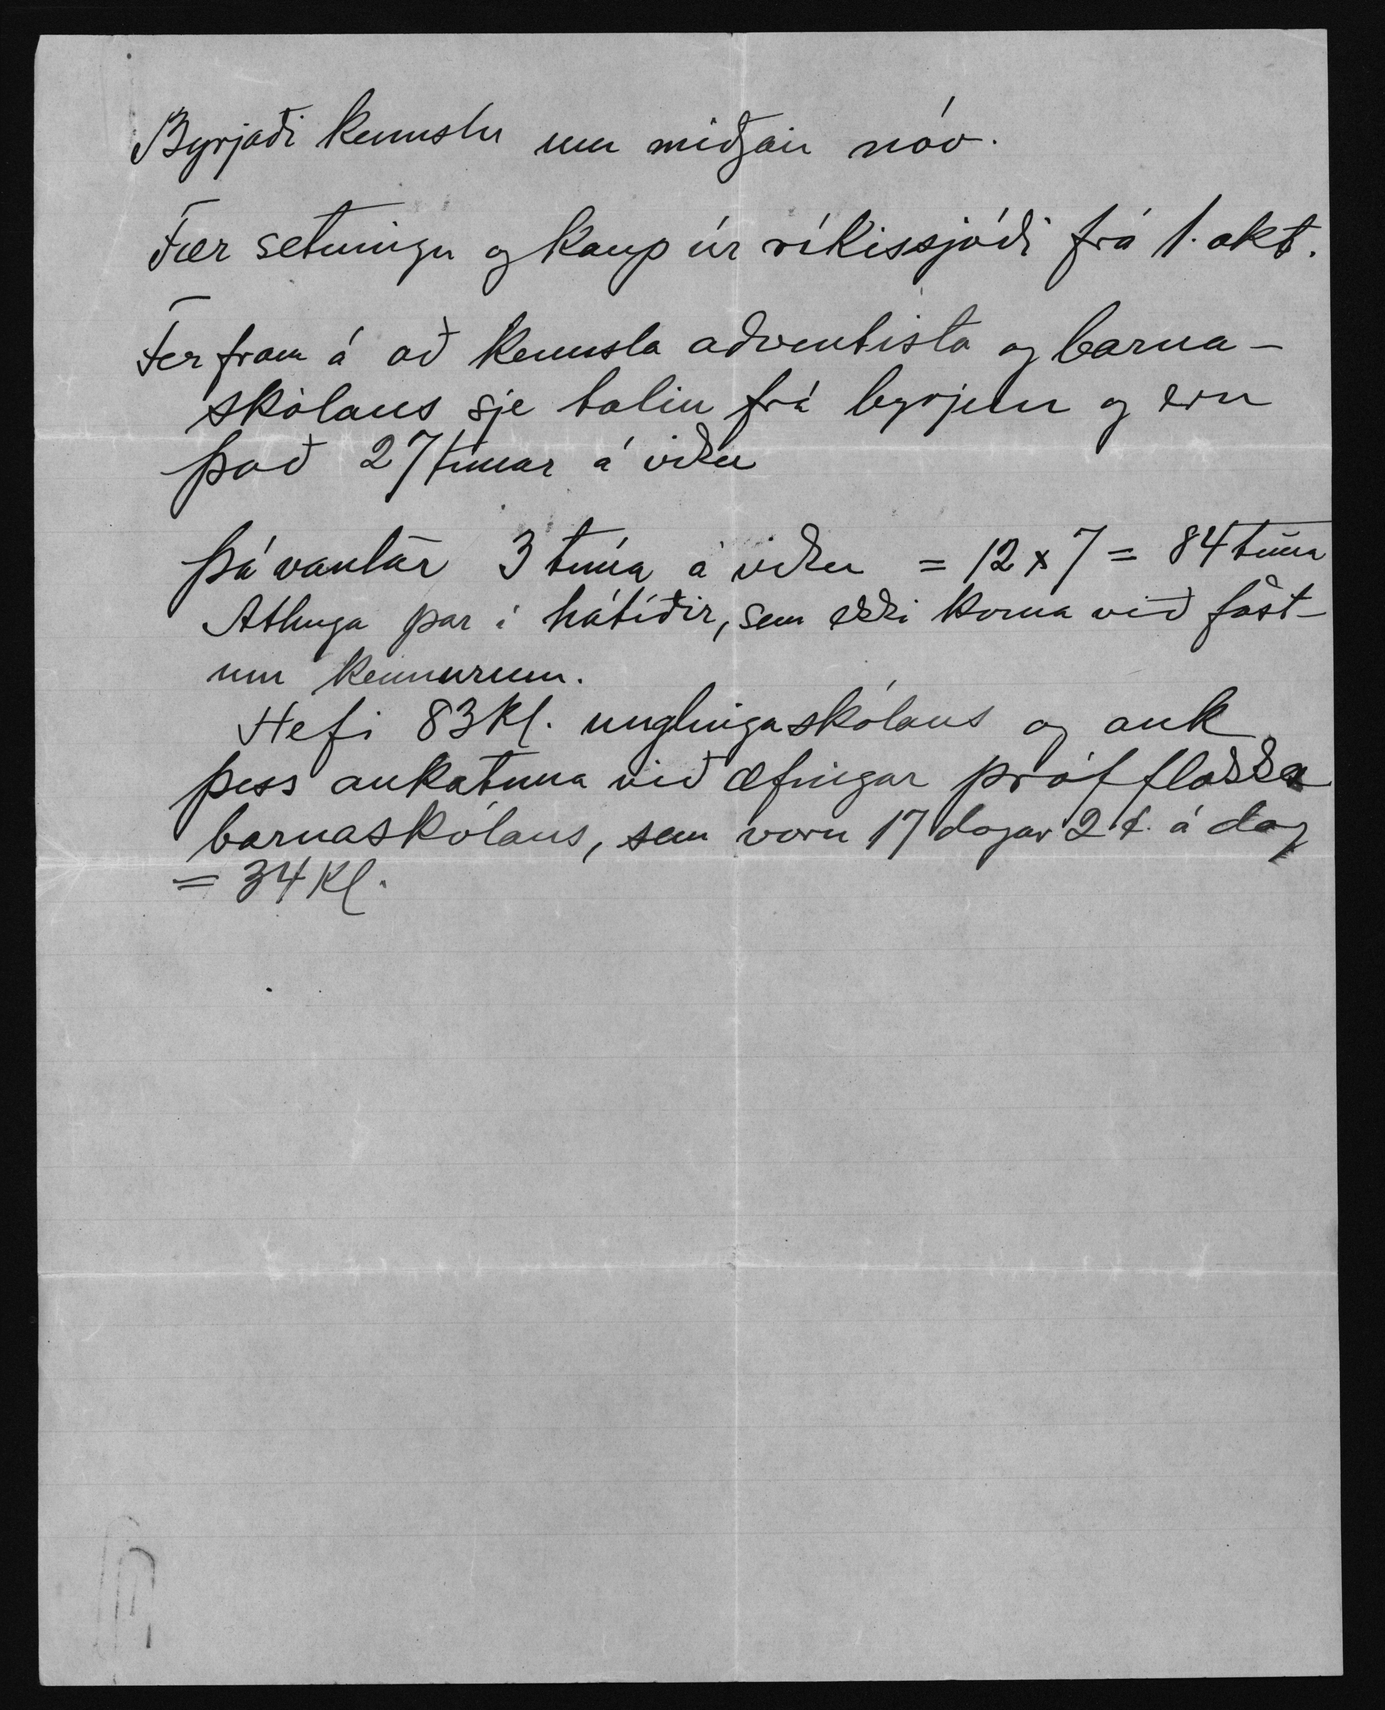 Byrjaði kennslu um miðjan nóv.
Fær setningu og kaup úr ríkissjóði frá 1. okt.
Fer fram á að kennsla adventista og barna-
skólans sje talin frá byrjun og eru
það 27 tímar á viku
Þá vantar 3 tíma á viku = 12 x 7 = 84 tíma
Athuga þar í hátíðir, sem ekki koma við föst-
um kennurum.
Hefi 83 kl. unglingaskólans og auk
þess aukatíma við æfingar prófflokka
barnaskólans, sem voru 17 dagar 2 t. á dag
= 34 kl.